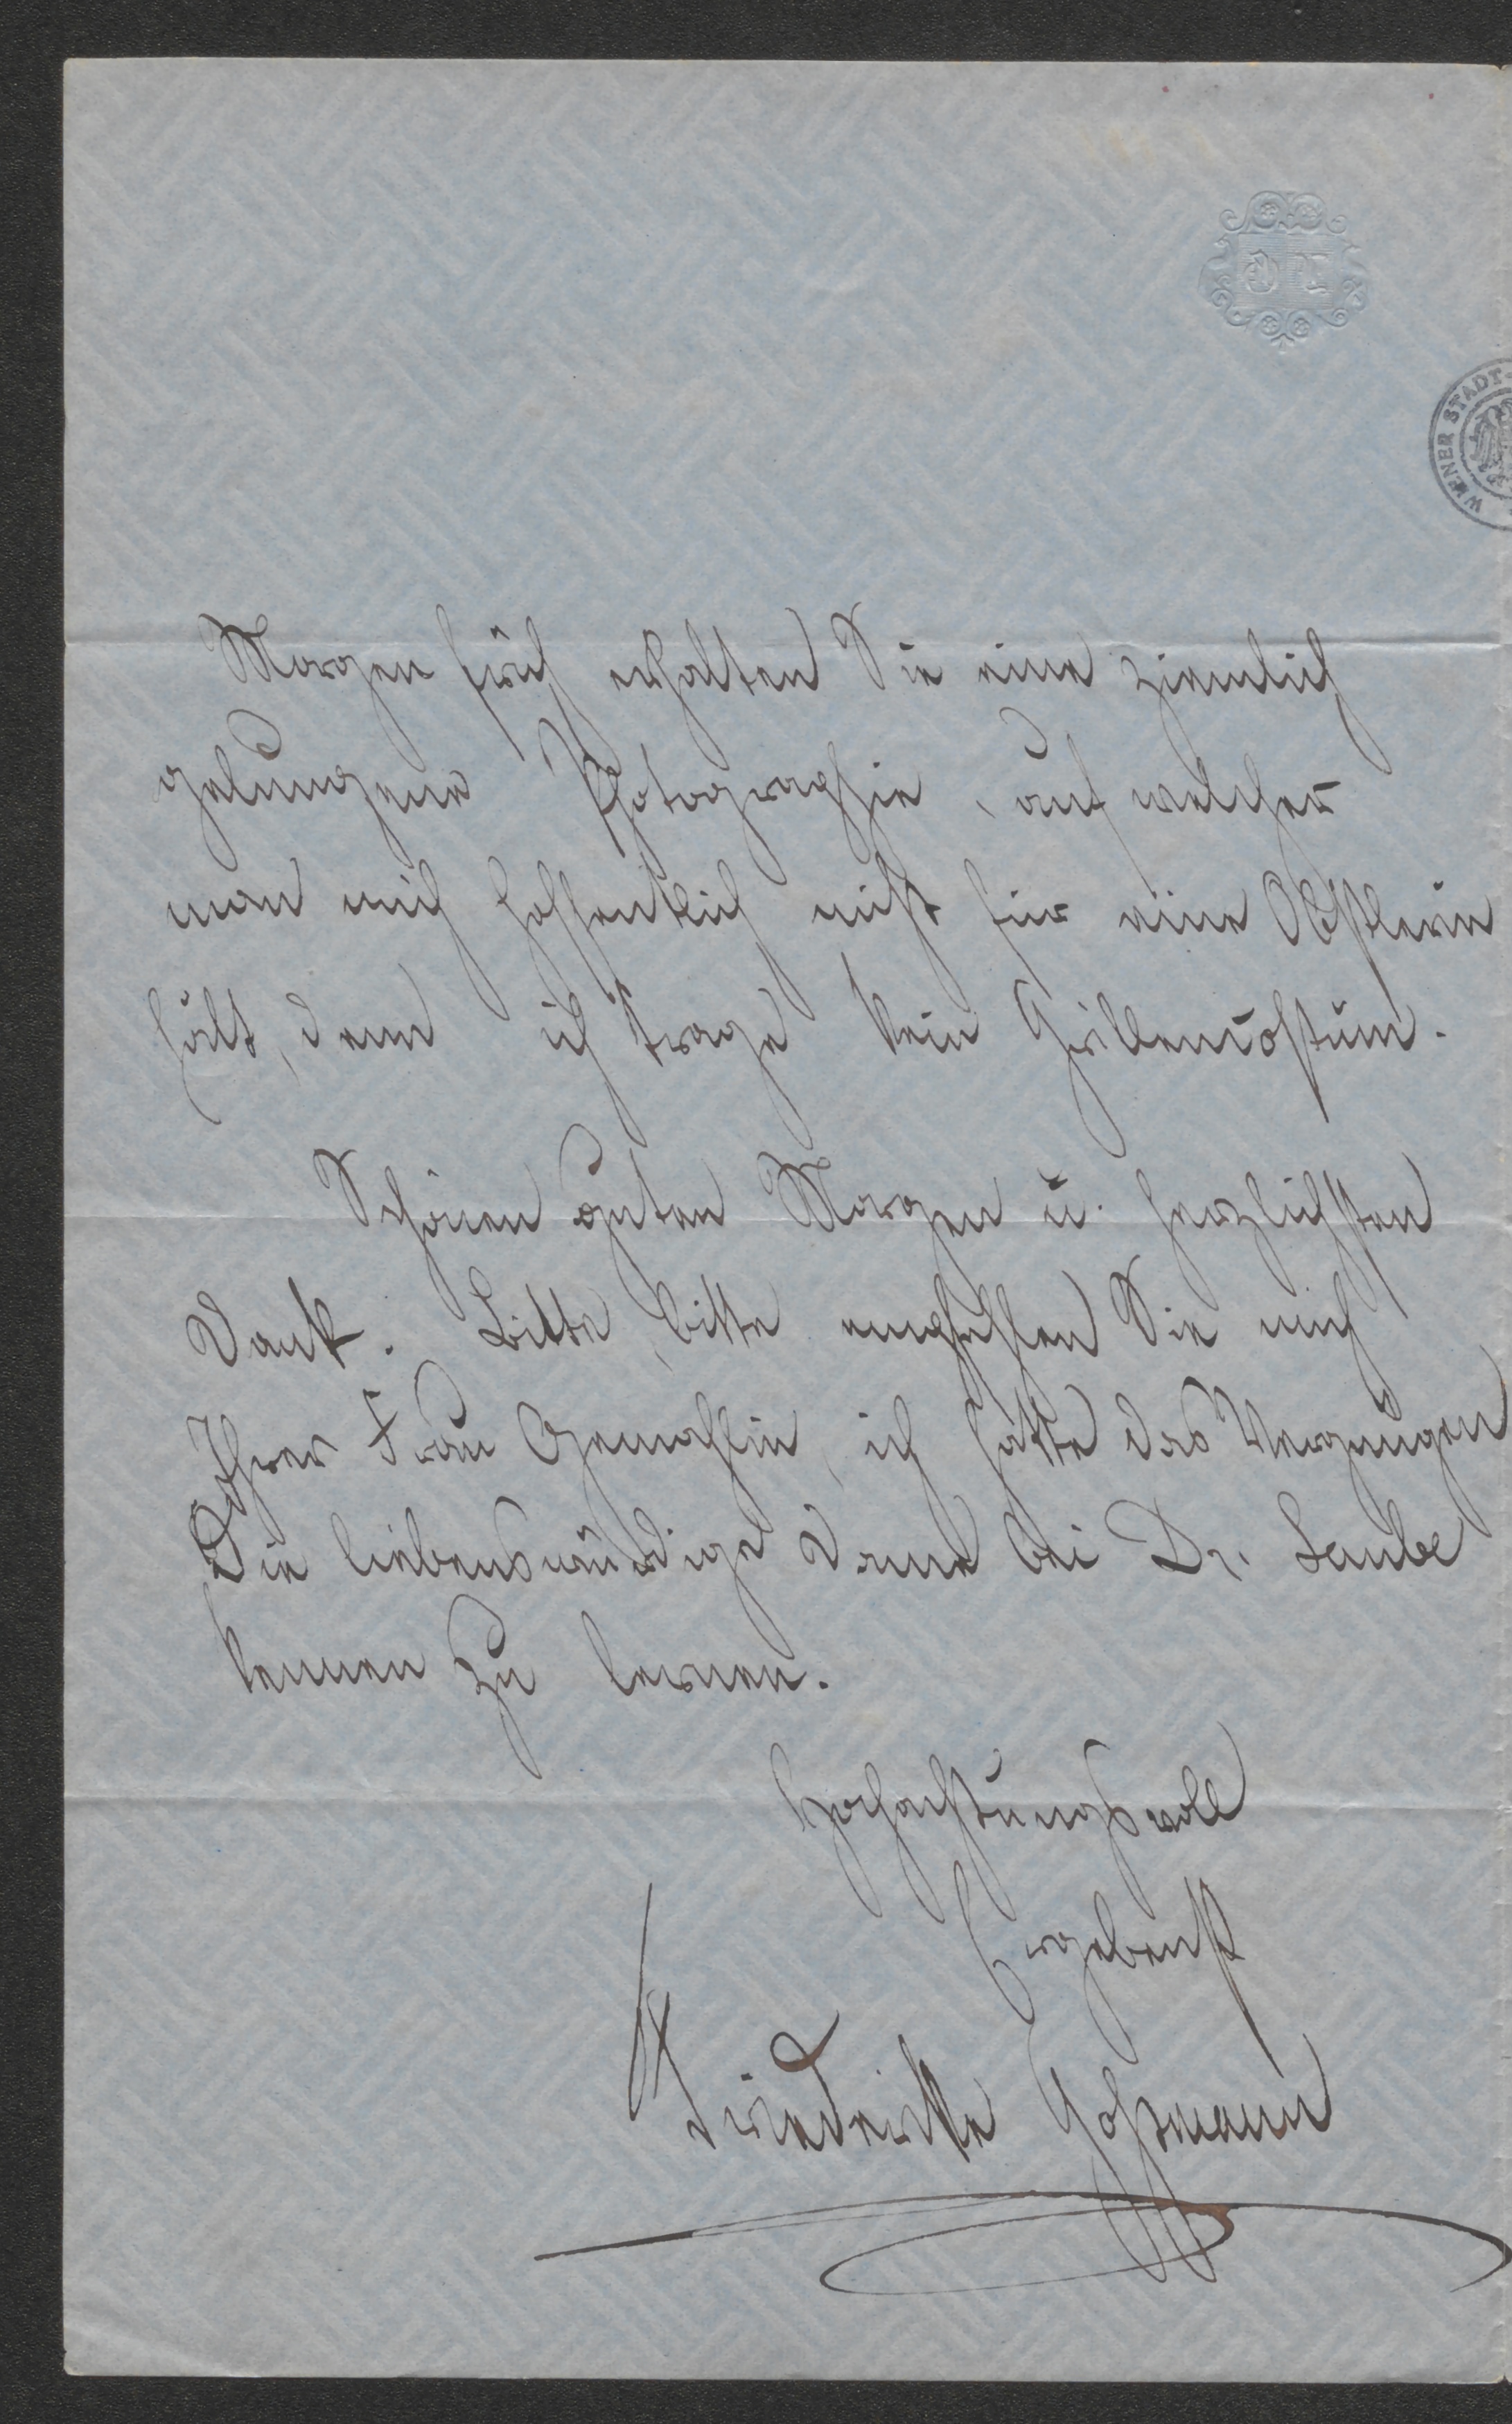 WIENER STADT-
Morgen früh erhalten Sie eine ziemlich
gelungene Photographie, auf welcher
man mich hoffentlich nicht für eine Obstlerin
hält, denn ich trage kein Grillencostüm.
Schönen guten Morgen u. herzlichsten
Dank. Bitte, bitte empfehlen Sie mich
Ihrer Frau Gemahlin, ich hatte das Vergnügen
Die liebenswürdige Dame bei Dr. Laube
kennen zu lernen.
Hochachtungsvoll
Ergebenst
Friederike Goßmann